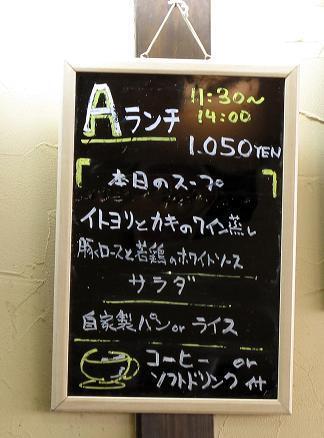 Aランチ
11:30~
14:00
1.050YEN
本日のスープ
イトヨリとカキのワイン蒸し
豚ロースと若鶏のホワイトソース
サラダ
自家製パンorライス
コーヒー or
ソフトドリンク付